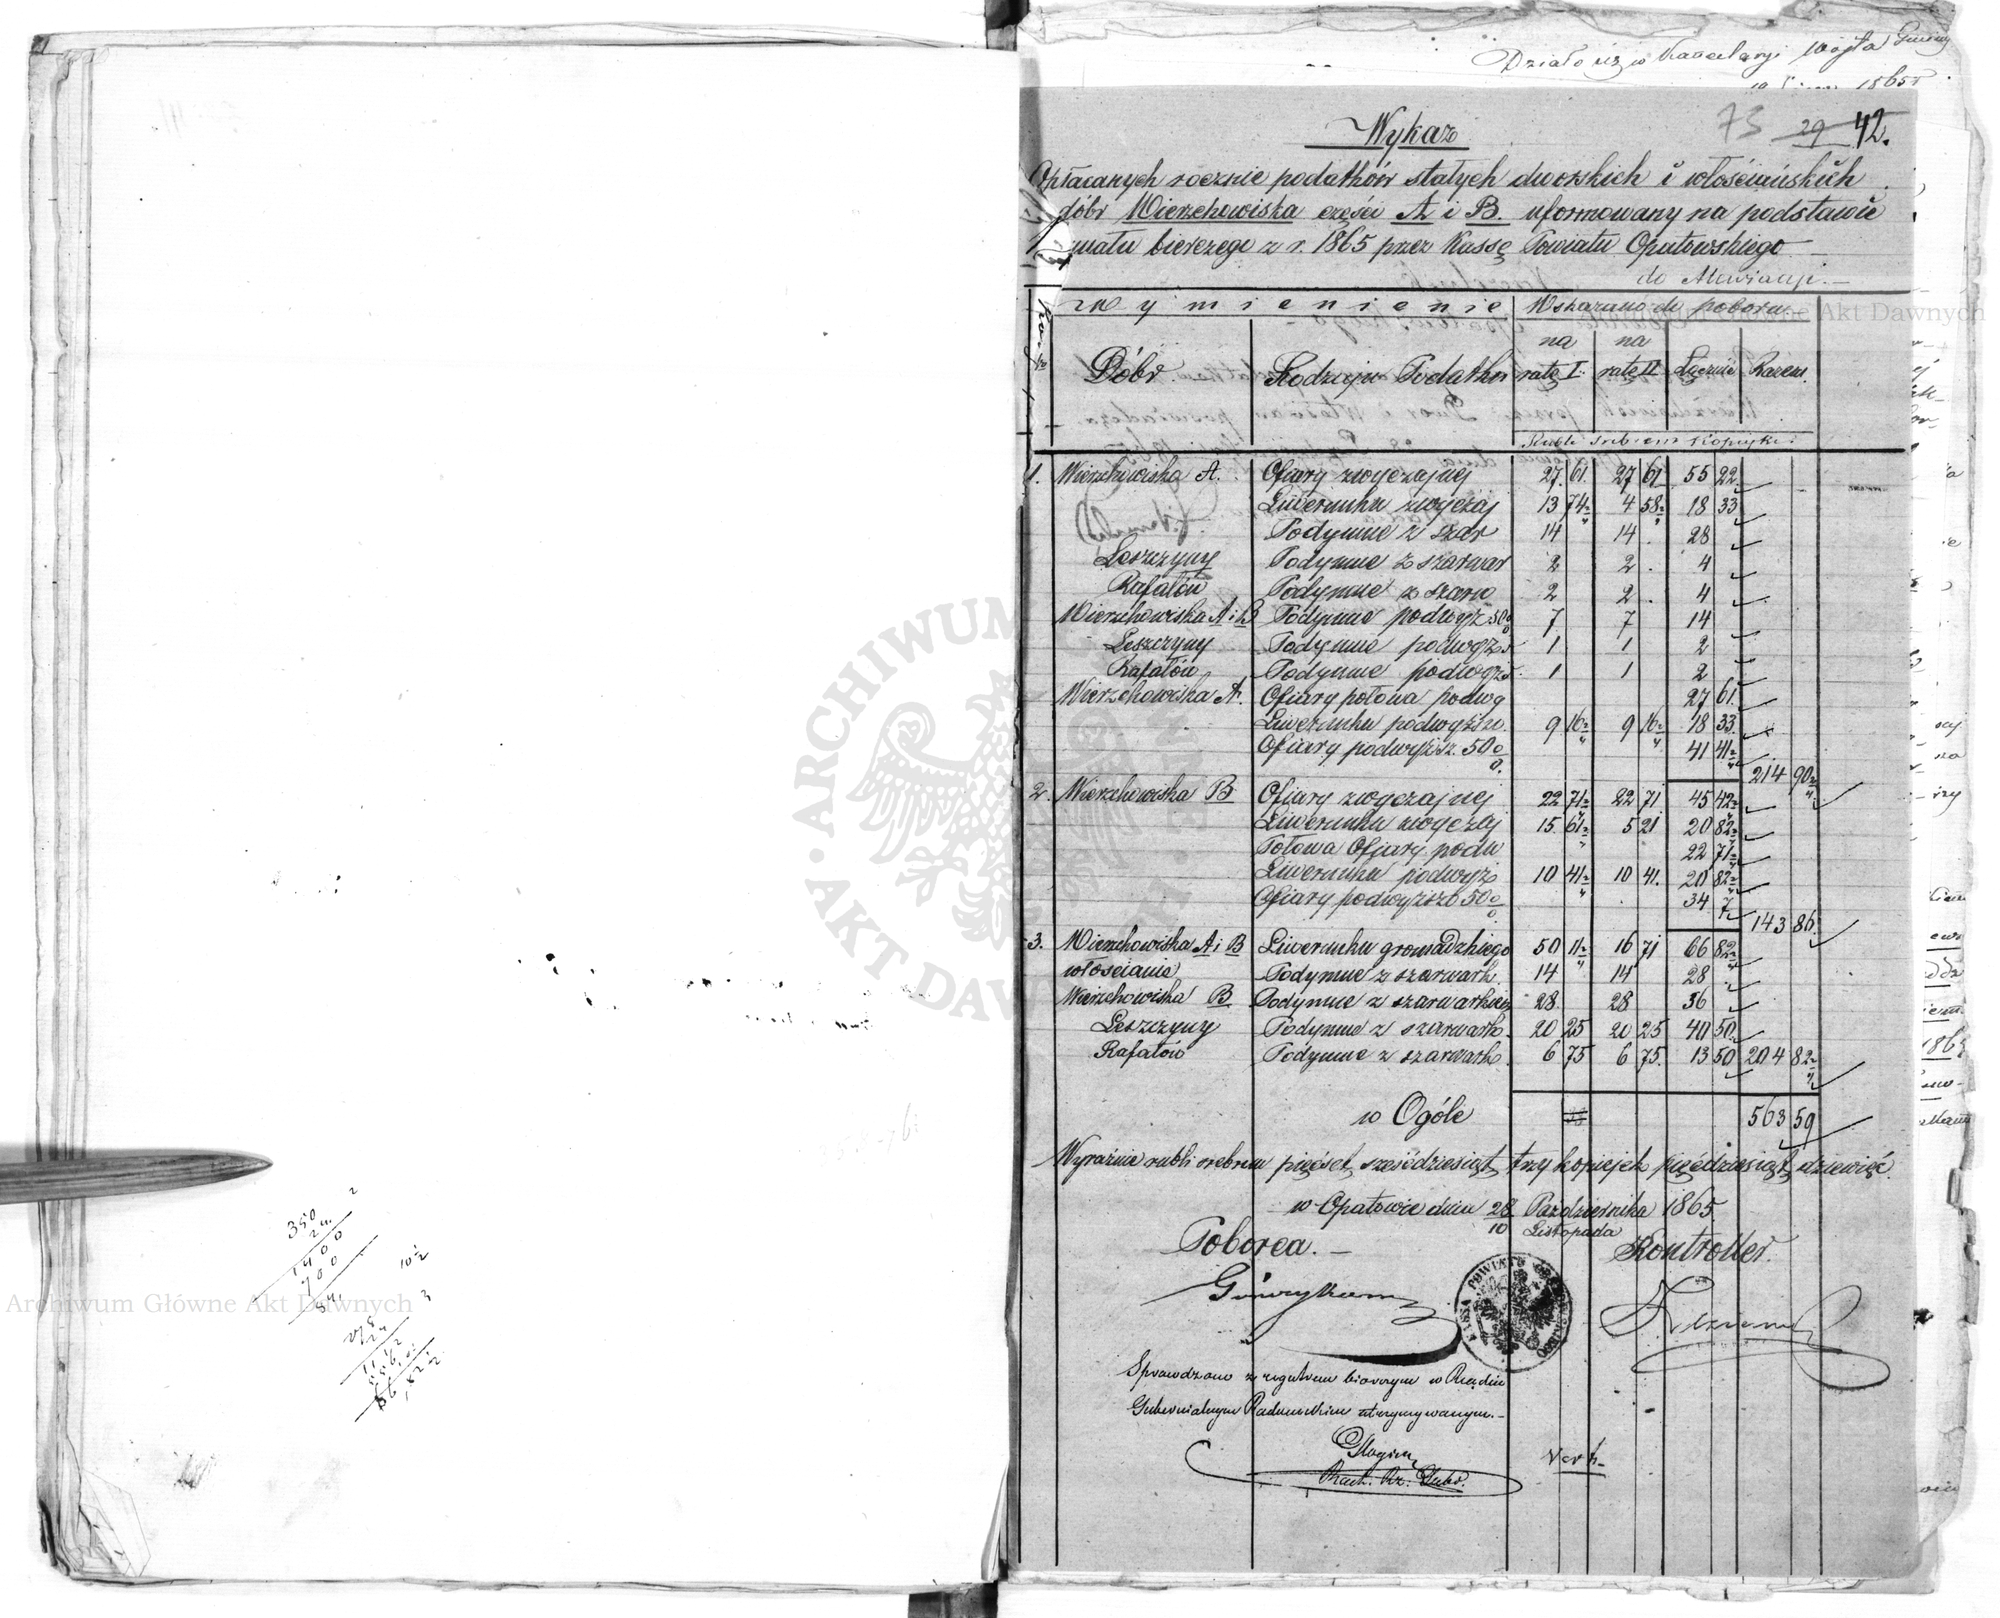 Działo się w Kancelaryi Wójta Gminy
1865 r
73 29 42.
Wykaz
Opłacanych rocznie podatków stałych dworskich i włościańskich
dóbr Wierzchowiska części A i B. uformowany na podstawie
bierczego z r. 1865 przez Kassę Powiatu Opatowskiego
do Alewiacyi.
Wymienienie Wskazano do poboru.
Dóbr. Rodzaju Podatku na ratę I. na ratę II Łącznie Razem.
Ruble srebrem kopiejki
1. Wierzchowiska A. Ofiary zwyczajnej 27. 61. 27 61 55 22.
Liwerunku zwyczaj 13 74½ 4 58½ 18 33
Podymne z szar 14 14 . 28
Leszczyny Podymne z szarwar 2 2 . 4
Rafałów Podymne z szarw 2 2 . 4
Wierzchowiska A i B Podymne podwyż 50% 7 7 14
Leszczyny Podymne podwyż 1 1 2
Rafałów Podymne podwyż 1 1 2
Wierzchowiska A. Ofiary połowa podwy 27 61.
Liwerunku podwyższo. 9 16½ 9 16½ 18 33.
Ofiary podwyższ. 50% 41 41½
214 90½
2. Wierzchowiska B Ofiary zwyczajnej 22 71½ 22 71 45 42½
Liwerunku zwyczaj 15. 61½ 5 21 20 82½
Połowa Ofiary podw 22 71½
Liwerunku podwyż 10 41½ 10 41. 20 82½
Ofiary podwyższo 50% 34 7
143 86
3. Wierzchowiska A i B Liwerunku gromadzkiego 50 11½ 16 71 66 82½
włościanie Podymne z szarwark. 14 14 28
Wierzchowiska B Podymne z szarwarkiem 28 28 56
Leszczyny Podymne z szarwark. 20 25 20 25 40 50.
Rafałów Podymne z szarwark. 6 75 6 75. 13 50 204 82½
w Ogóle 563 59
Wyraźnie rubli srebrem pięćset sześćdziesiąt trzy kopiejek pięćdziesiąt dziewięć.
w Opatowie dnia 28 Października 1865.
10 Listopada
Poborca. — Kontroller.
KASSA POWIATU OPATOWSKIEGO
Sprawdzono z regestrem bierczym w Rządzie
Gubernialnym Radomskim utrzymywanym.—
Rach. Rz. Gub.
Vert.
350
1400
700
10½
3
Archiwum Główne Akt Dawnych
Główne Akt Dawnych
ARCHIWUM GŁÓWNE AKT DAWNYCH